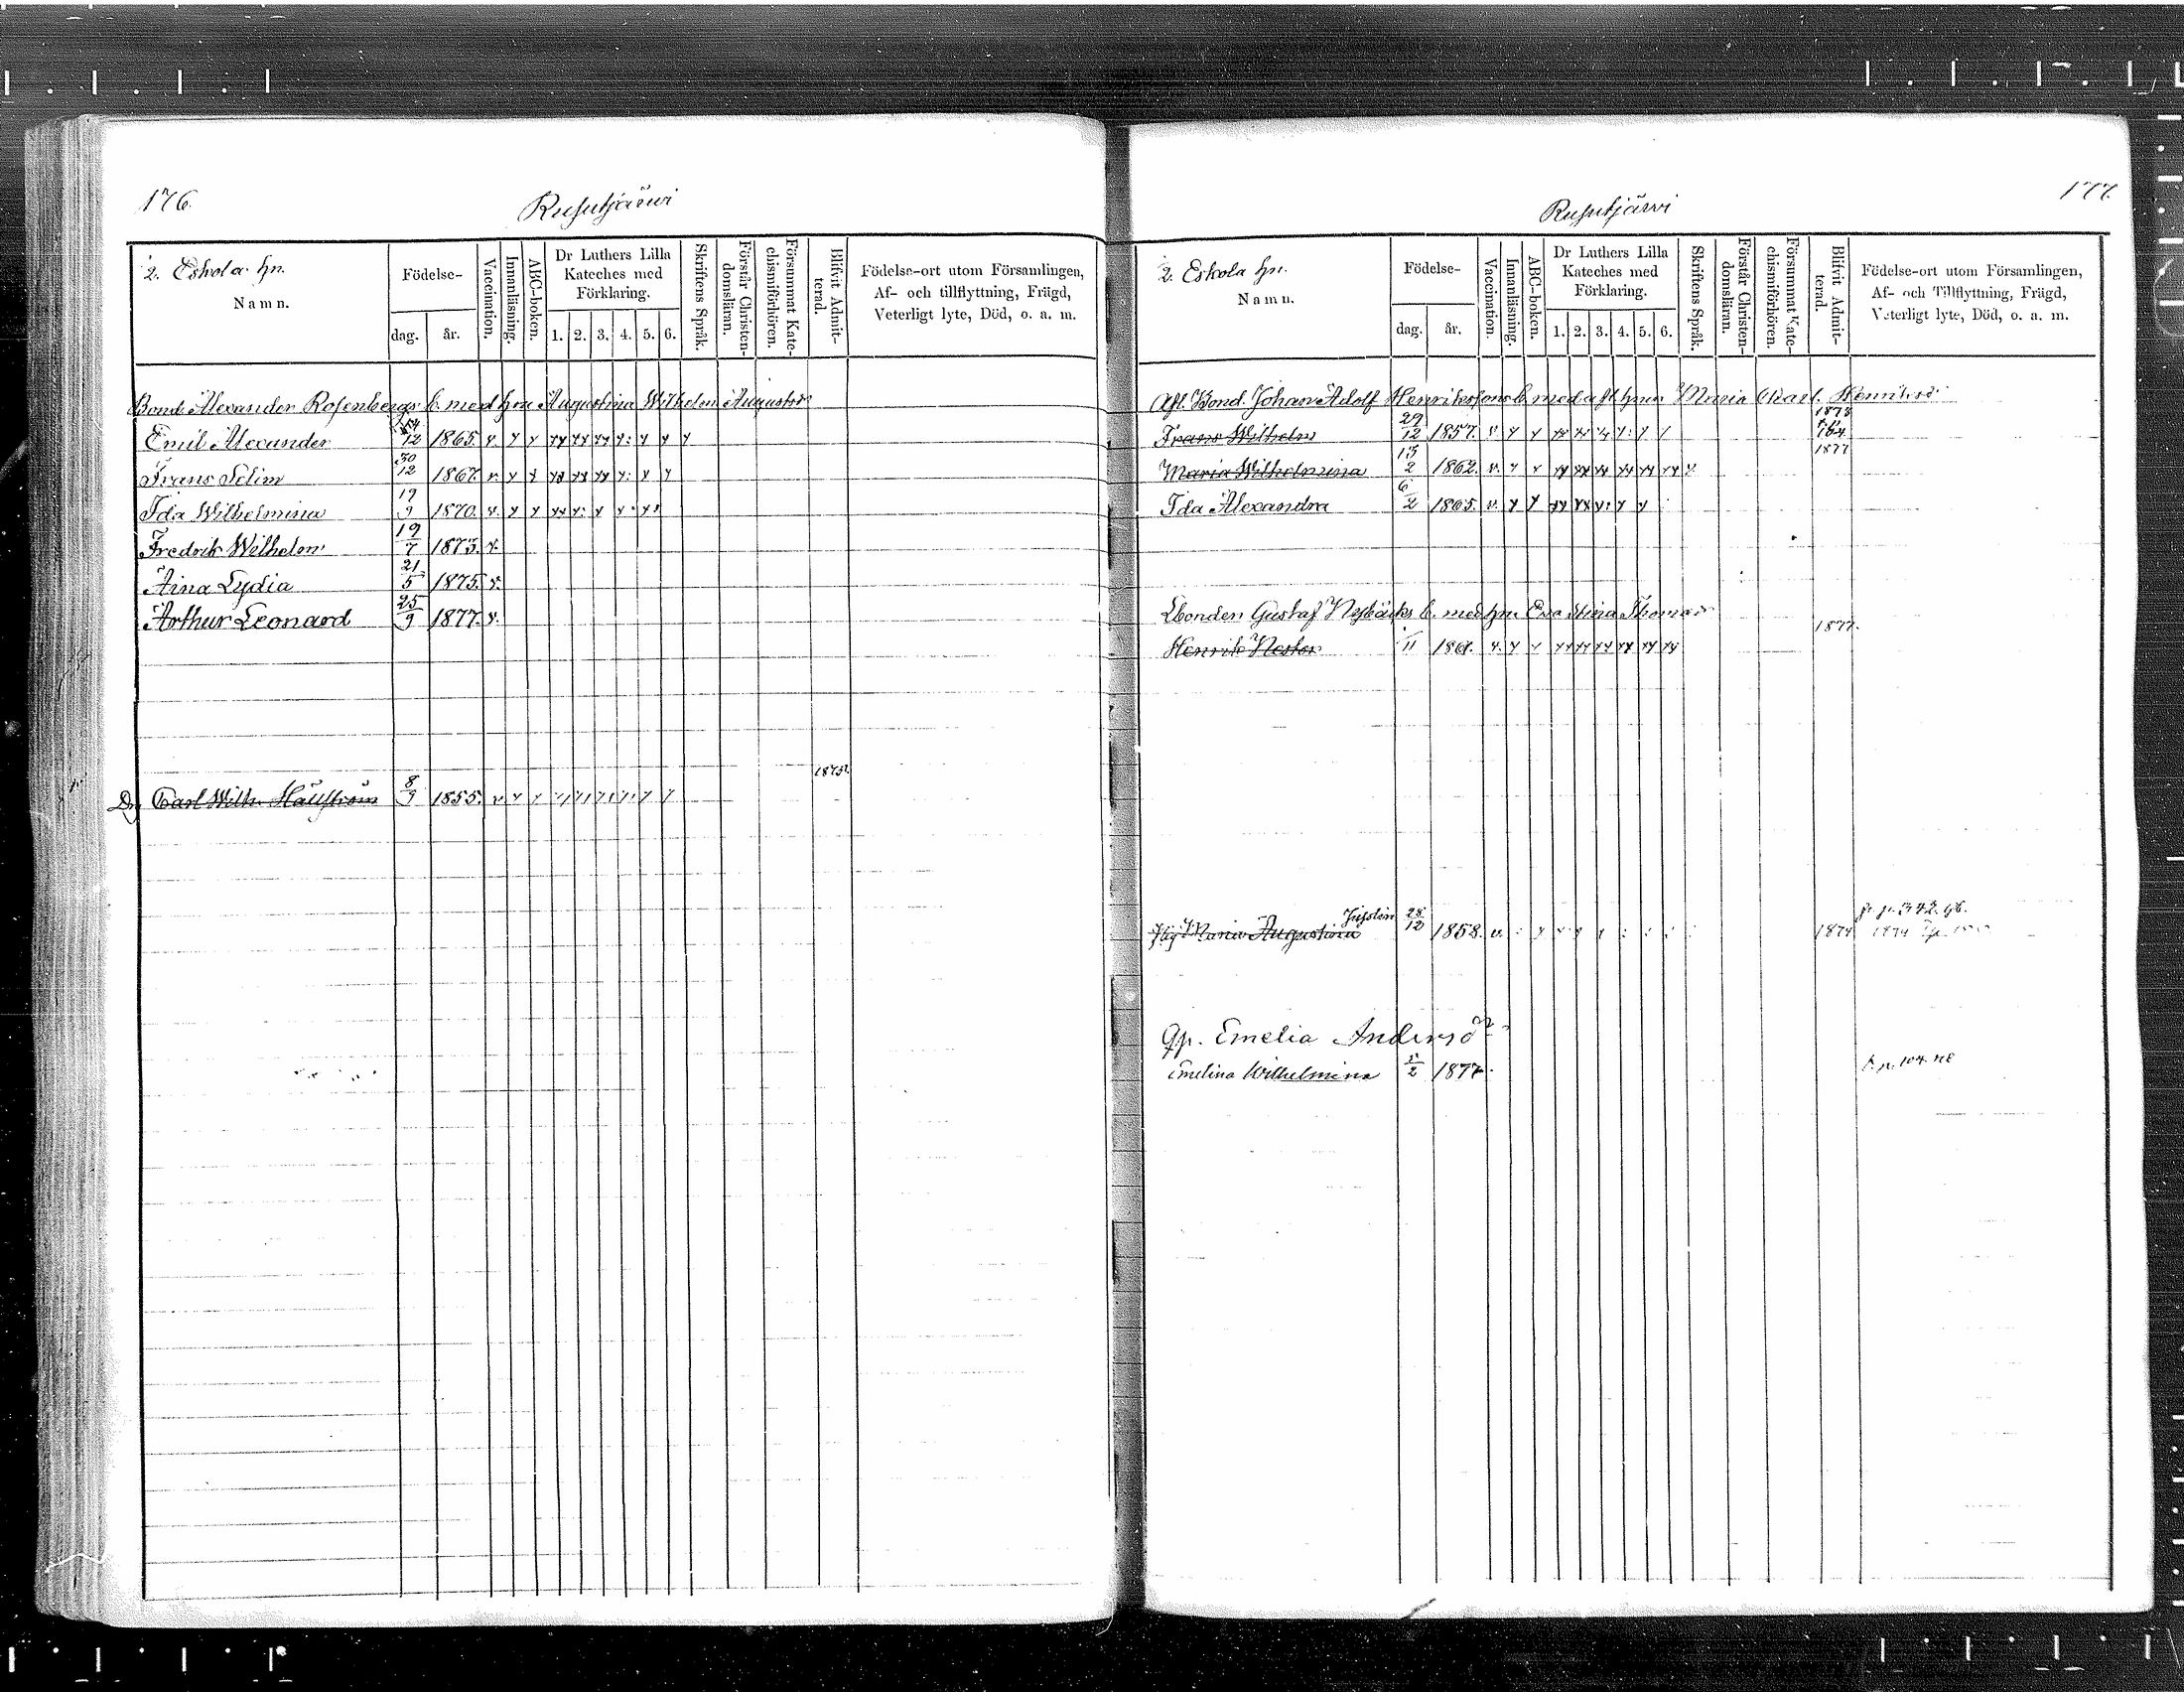 176.
Rusutjärwi
2. Eskola hn.
Namn.
Födelse-
dag.
år.
Vaccination.
Innanläsning.
ABC-boken.
Dr Luthers Lilla
Kateches med
Förklaring.
1. 2. 3. 4. 5. 6.
Skriftens Språk.
Förstår Christen-
domsläran.
Försummat Kate-
chismiförhören.
Blifvit Admit-
terad.
Födelse-ort utom Församlingen,
Af- och tillflyttning, Frägd,
Veterligt lyte, Död, o. a. m.
Bond. Alexander Rosenbergs b. med hru Augustina Wilhelm
Emil Alexander 12 1865. v.
Frans Selim 30/12 1867. v.
Ida Wilhelmina 19/9 1870. v.
Fredrik Wilhelm 19/7 1873. v.
Aina Lydia 21/5 1875. v.
Arthur Leonard 25/9 1877. v.
1875.
Carl Wilh. Hällström 8/9 1855. v
177.
Rusutjärwi
2. Eskola hn.
Namn.
Födelse-
dag.
år.
Vaccination.
Innanläsning.
ABC-boken.
Dr Luthers Lilla
Kateches med
Förklaring.
1. 2. 3. 4. 5. 6.
Skriftens Språk.
Förstår Christen-
domsläran.
Försummat Kate-
chismiförhören.
Blifvit Admit-
terad.
Födelse-ort utom Församlingen,
Af- och Tillflyttning, Frägd,
Veterligt lyte, Död, o. a. m.
Afl. Bond. Johan Adolf Henrikssons b. med afl. hrun Maria
Frans Wilhelm 29/12 1857. v.
1877
Maria Wilhelmina 13/2 1862. v.
Ida Alexandra 6/2 1865. v.
Ebonden Gustaf b. med hru. Eva Stina
1877.
Henrik Nestor 11 1861. v.
Maria Augustina 28/12 1858. v. 1874
fr. p. 342. gb.
1874
Qp. Emelia
Emelina Wilhelmina 2 1877.